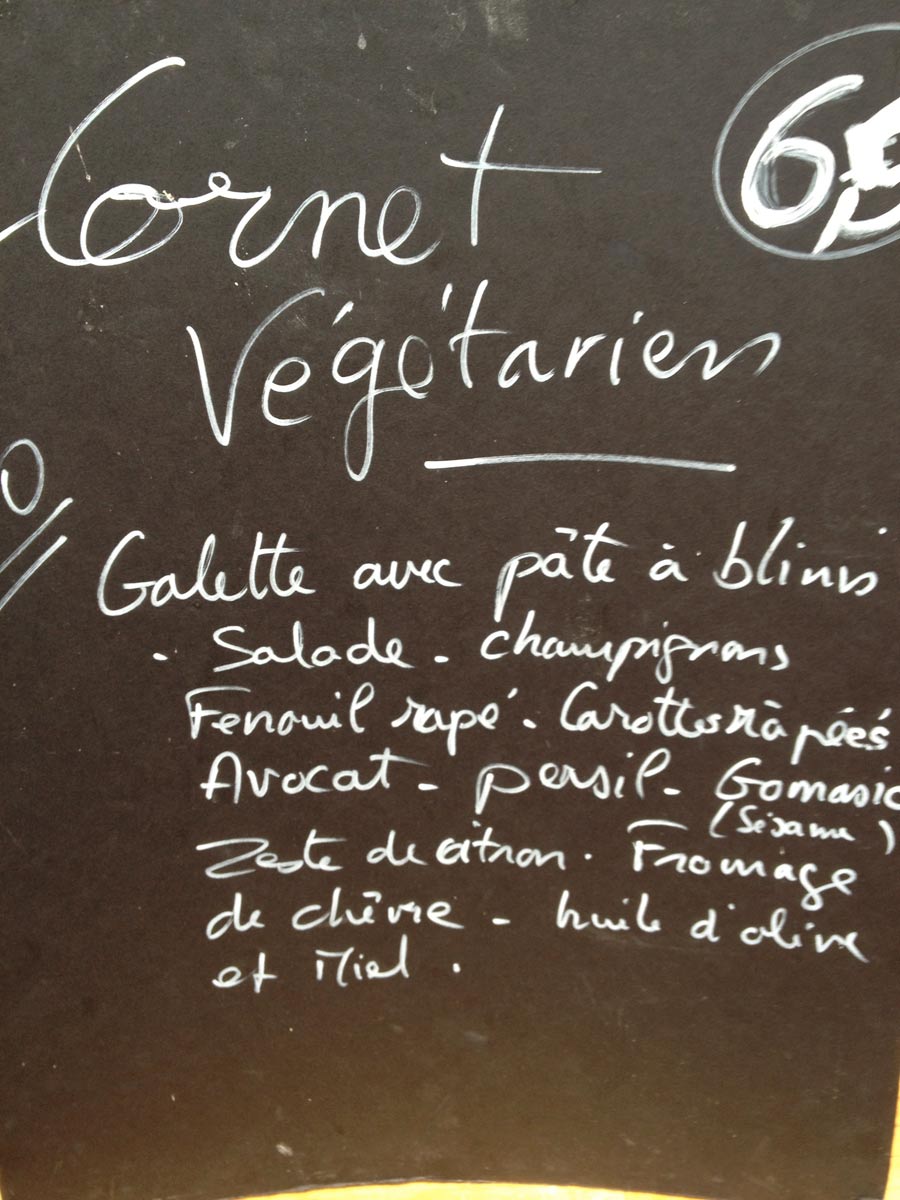 Cornet
Végétarien
Galette avec pâte à blinis
. Salade - champignons
Fenouil rapé - Carottes rapéés
Avocat - persil - Gomasio
(Sésame)
Zeste de citron . Fromage
de chèvre - huile d'olive
et Miel .